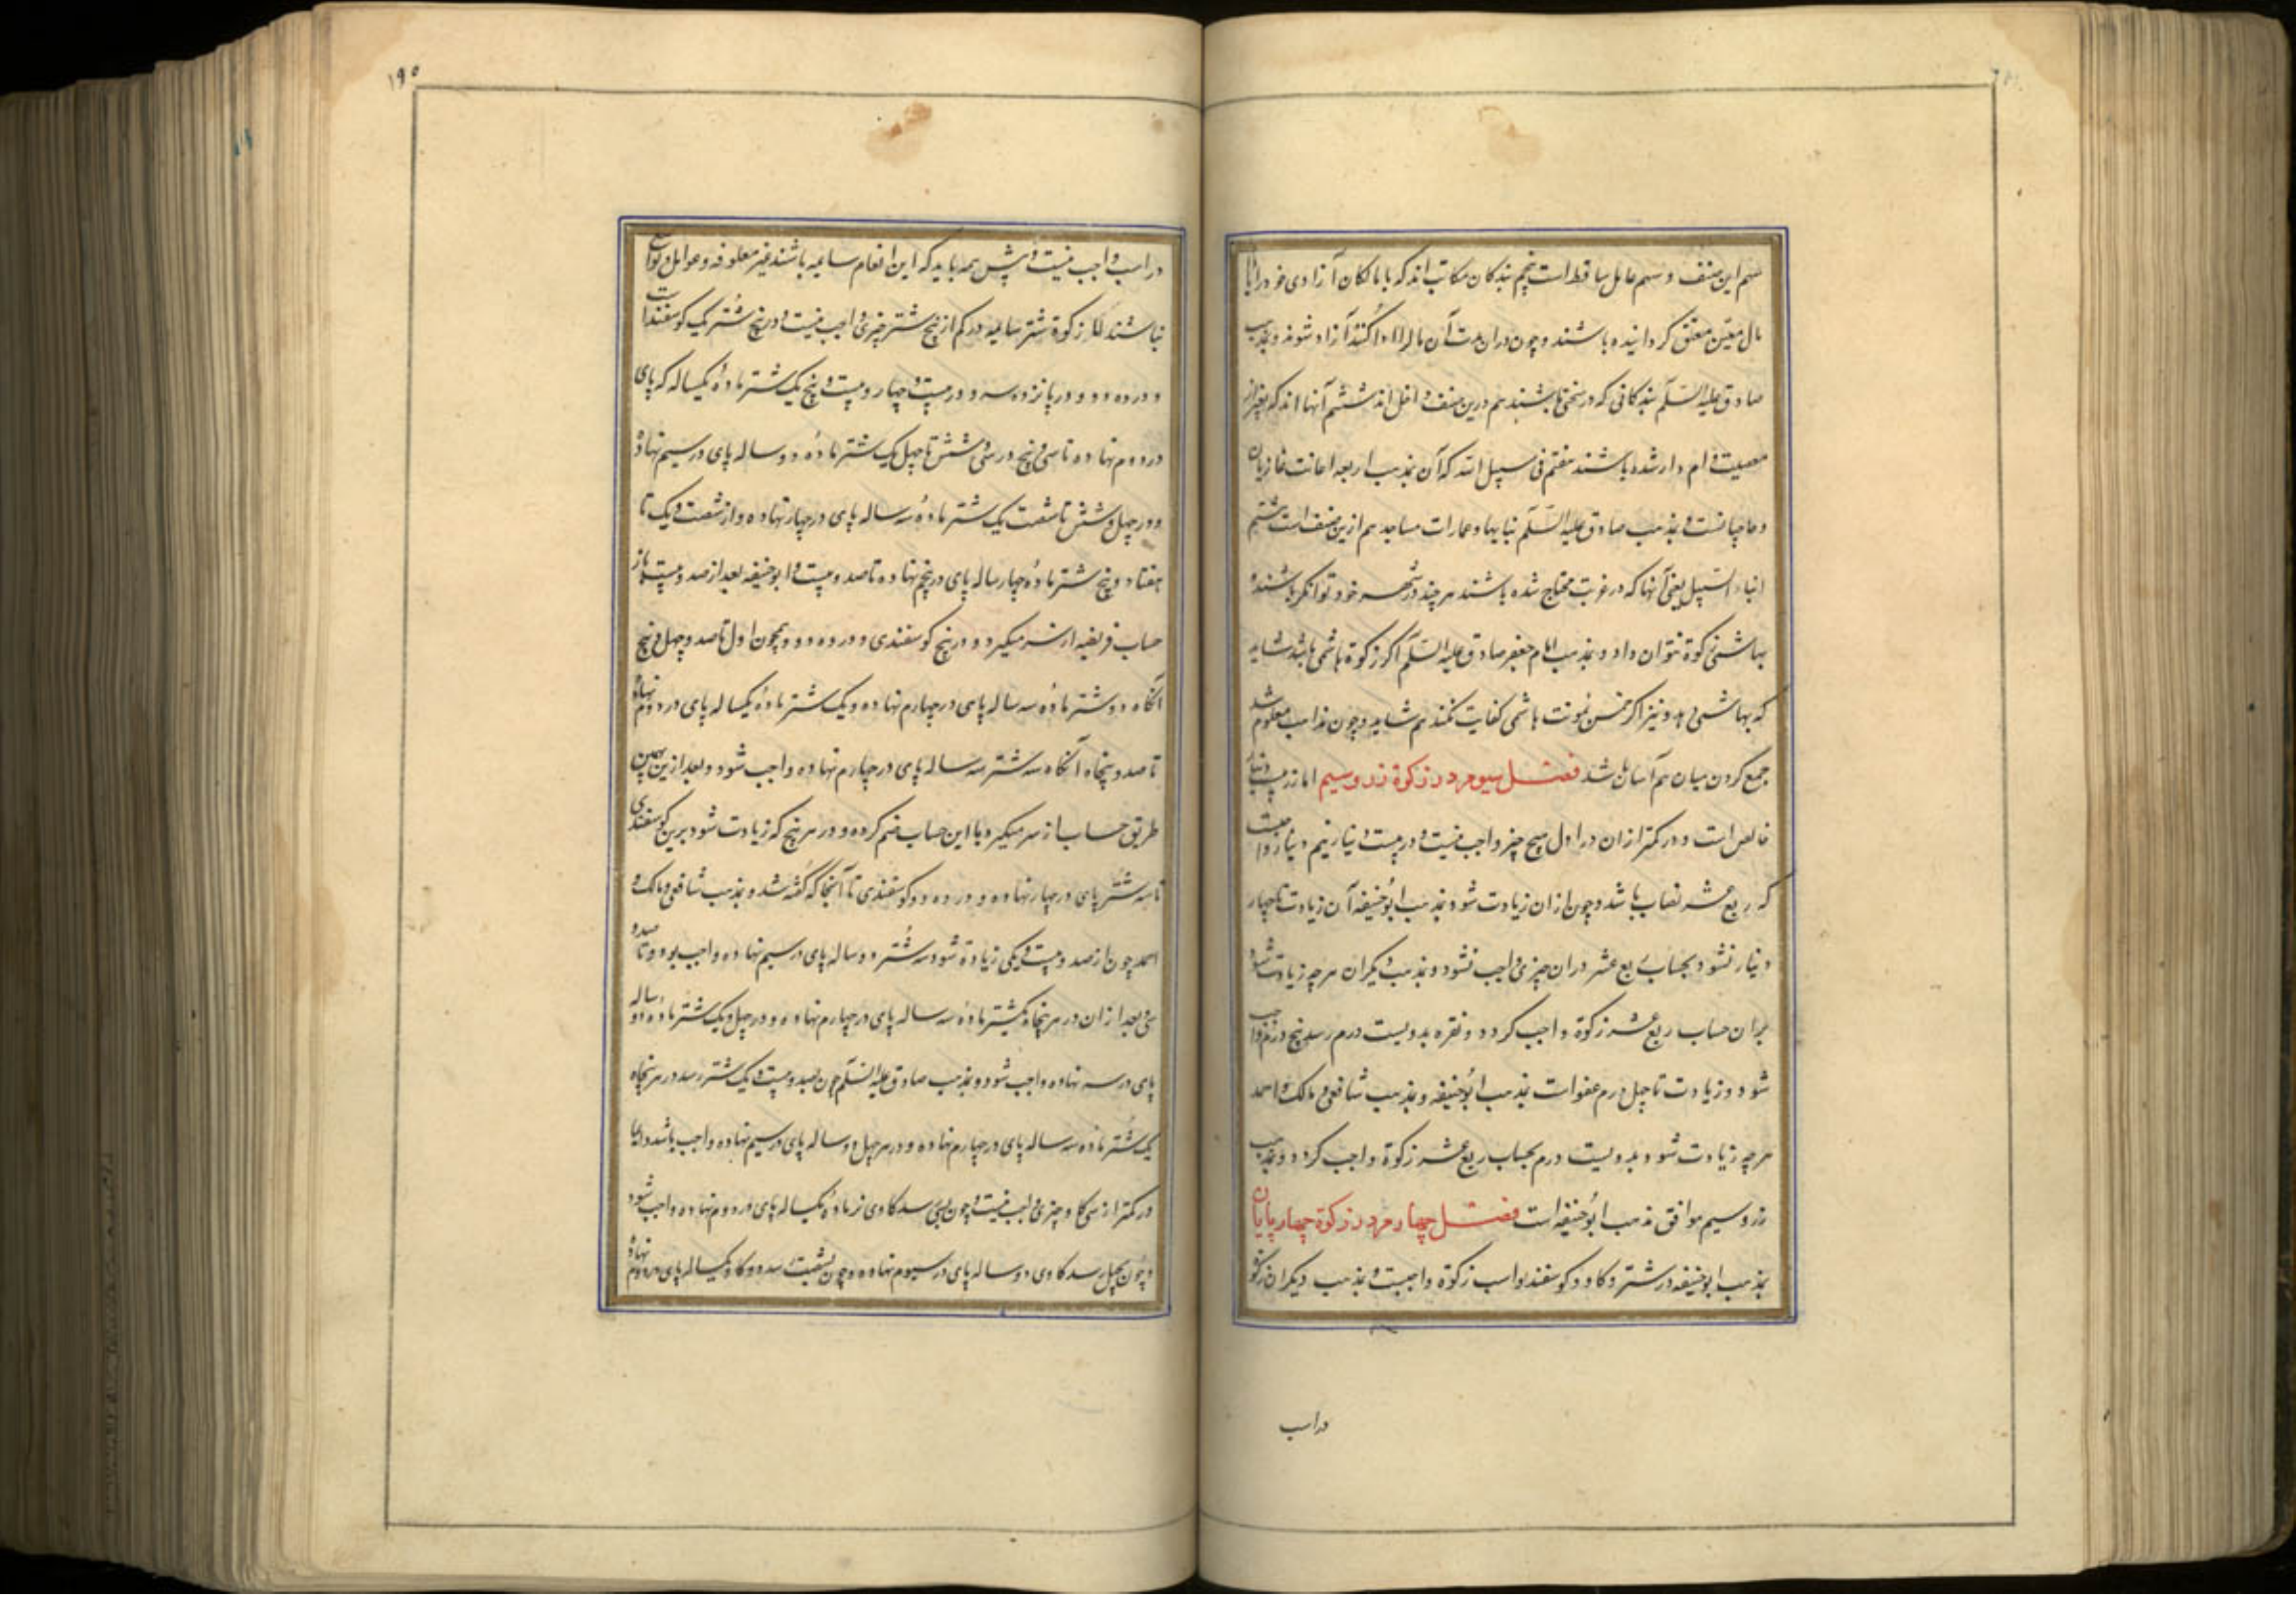 سهم این صنف و سهم عامل ساقط است پنجم بندکان مکاتب اند که با مالکان آزادی خود را با
مال معین معلق کردانیده باشند و چون در ان مدت آن مال را ادا کنند آزاد شوند و بمذهب
صادق علیه السلم بندکانی که در سختی باشند هم درین صنف داخل اند ششم آنها اند که بغیر از
معصیت وام دار شده باشند هفتم فی سبیل الله که آن بمذهب اربعه اعانت غازیان
و حاجیانست و بمذهب صادق علیه السلم بنابیها و عمارات مساجد هم ازین صنف است هشتم
ابناء السبیل یعنی آنها که در غربت محتاج شده باشند هر چند در شهر خود توانکر باشند و
بهاشمی زکوة نتوان داد و بمذهب امام جعفر صادق علیه السلم اکر زکوة هاشمی باشد شاید
که بهاشمی دهد و نیز اکر خمس بمونت هاشمی کفایت نکند هم شاید و چون مذاهب معلوم شد
جمع کردن میان هم آسان باشد فصل سیوم در زکوة زر و سیم اما زر بیست دینار
خالص است و در کمتر از ان در اول هیچ چیز واجب نیست و در بیست دینار نیم دینار واجبست
که ربع عشر نصاب باشد و چون از ان زیادت شود بمذهب ابوحنیفه آن زیادت تا چهار
دینار نشود بحساب ربع عشر در ان چیزی واجب نشود و بمذهب دیکران هر چه زیادت شود
بران حساب ربع عشر زکوة واجب کردد و نقره بدویست درم رسد پنج درم واجب
شود و زیادت تا چهل درم عفو است بمذهب ابوحنیفه و بمذهب شافعی و مالک و احمد
هر چه زیادت شود بدویست درم بحساب ربع عشر زکوة واجب کردد و بمذهب
زر و سیم موافق مذهب ابوحنیفه است فصل چهارم در زکوة چهارپایان
بمذهب ابوحنیفه در شتر و کاو و کوسفند و اسب زکوة واجبست و بمذهب دیکران زکوة
در اسب
١٩٥
در اسب واجب نیست و پیش همه باید که این انعام سایمه باشند غیر معلوفه و عوامل و نواضح
نباشند اما زکوة شتر سایمه در کم از پنج شتر چیزی واجب نیست و در پنج شتر یک کوسفند است
و در ده دو و در پانزده سه و در بیست چهار و بیست و پنج یک شتر ماده یکساله که پای
در دوم نهاده تا سی و پنج و در سی و شش تا چهل یک شتر ماده دو ساله پای در سیم نهاده
و در چهل و شش تا شصت یک شتر ماده سه ساله پای در چهار نهاده و از شصت و یک تا
هفتاد و پنج شتر ماده چهار ساله پای در پنجم نهاده تا صد و بیست و ابوحنیفه بعد از صد و بیست باز
حساب فریضه از سر میکیرد و در پنج کوسفندی و در ده دو و همچون اول تا صد و چهل و پنج
آنکاه دو شتر ماده سه ساله پای در چهارم نهاده و یک شتر ماده یکساله پای در دوم نهاده
تا صد و پنجاه آنکاه سه شتر سه ساله پای در چهارم نهاده واجب شود و بعد ازین بهمین
طریق حساب از سر میکیرد با این حساب ضم کرده و در هر پنج که زیادت شود برین کوسفندی
تا سه شتر پای در چهار نهاده و در ده دو کوسفندی تا آنجا که کفته شد و بمذهب شافعی و مالک و
احمد چون از صد و بیست و یکی زیادة شود سه شتر دو ساله پای در سیم نهاده واجب بود و تا صد و
سی و بعد از ان در هر پنجاه یکشتر ماده سه ساله پای در چهارم نهاده و در چهل و یک شتر ماده دو ساله
پای در سه نهاده واجب شود و بمذهب صادق علیه السلم چون بصد و بیست و یک شتر رسد در هر پنجاه
یک شتر ماده سه ساله پای در چهارم نهاده و در هر چهل دو ساله پای در سیم نهاده واجب باشد و اما
در کمتر از سی کاو چیزی واجب نیست و چون بسی رسد کاوی نر ماده یکساله پای در دوم نهاده واجب شود
و چون بچهل رسد کاوی دو ساله پای در سیوم نهاده و چون بشصت رسد دو کاو یکساله پای در دوم نهاده